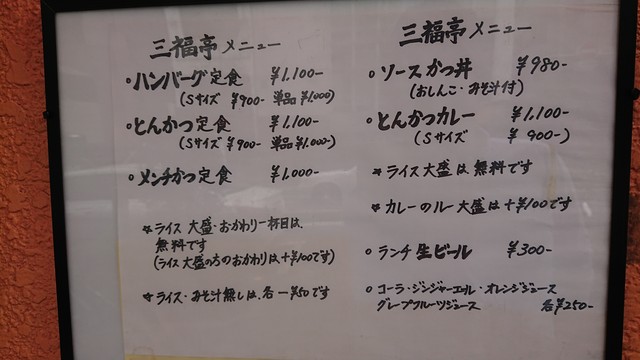 三福亭 メニュー
○ハンバーグ定食 ¥1.100-
(Sサイズ ¥900- 単品¥1.000)
○とんかつ定食 ¥1.100-
(Sサイズ ¥900- 単品¥1.000-)
○メンチかつ定食 ¥1.000-
☆ライス 大盛・おかわり一杯目は、
無料です
(ライス大盛のちのおかわりは+¥100です)
☆ライス・みそ汁無しは、各-¥50です
三福亭 メニュー
○ソースかつ丼 ¥980-
(おしんこ・みそ汁付)
○とんかつカレー ¥1.100-
(Sサイズ ¥900-)
☆ライス大盛は無料です
☆カレーのルー大盛は+¥100です
○ランチ生ビール ¥300-
○コーラ・ジンジャーエール・オレンジジュース
グレープフルーツジュース 各¥250-